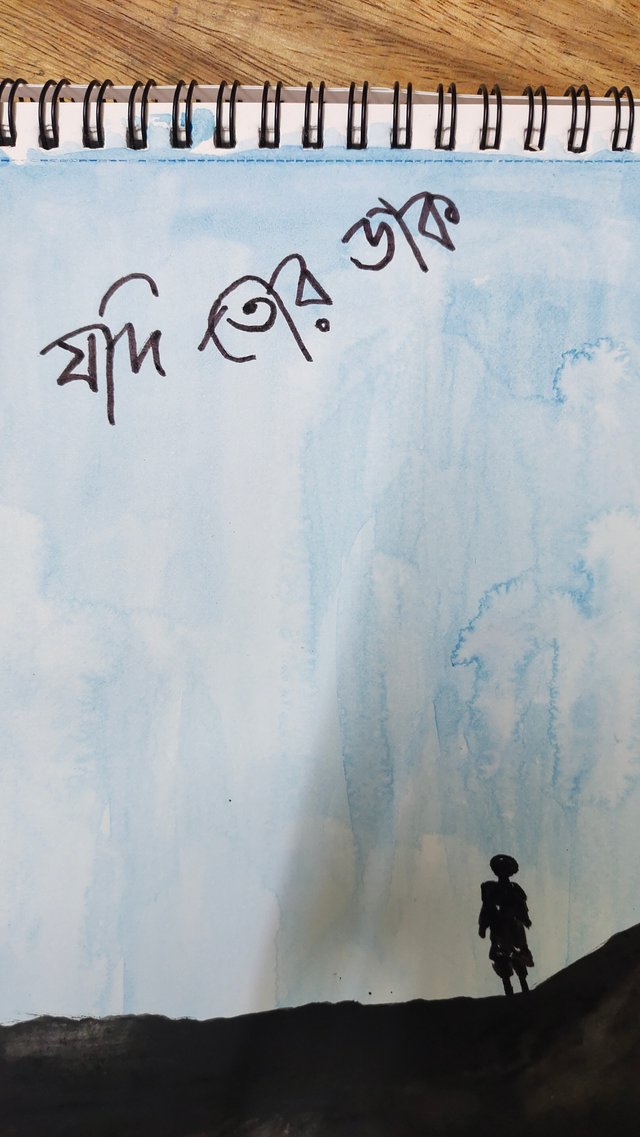 যদি তোর ডাক